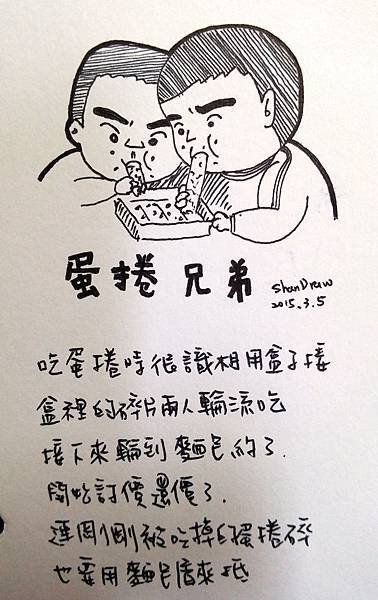 蛋捲兄弟
ShanDraw
2015.3.5
吃蛋捲時很識相用盒子接
盒裡的碎片兩人輪流吃
接下來輪到麵包的了.
開始討價還價了.
連剛剛被吃掉的蛋捲碎
也要用麵包屑來抵